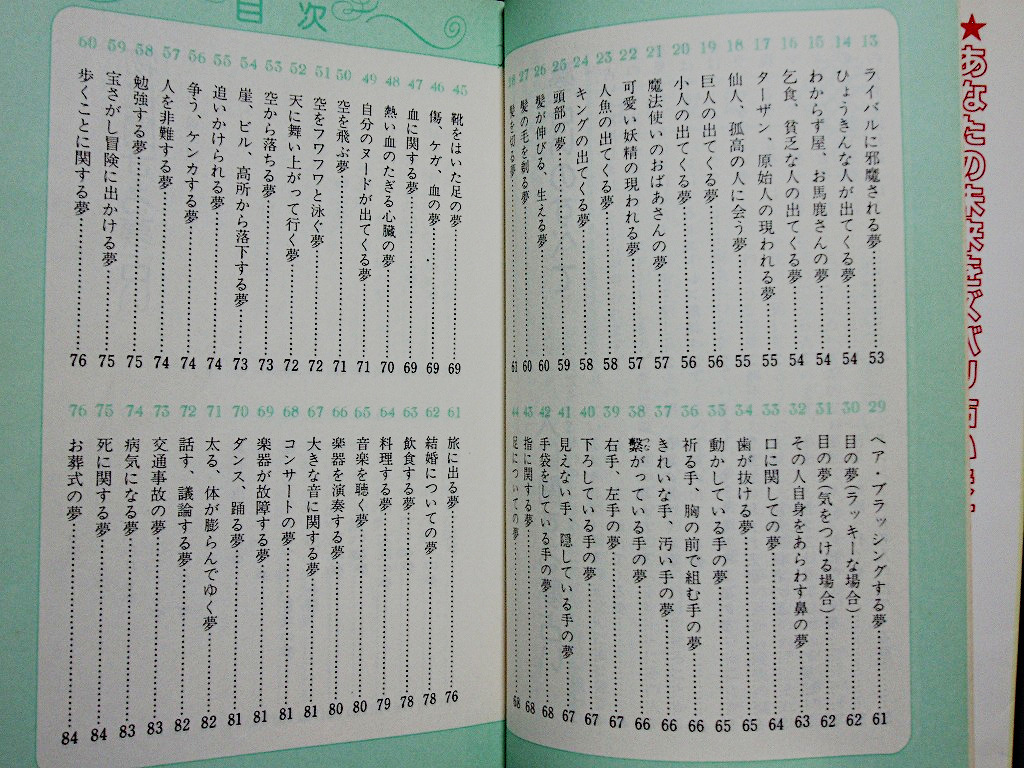 ★あなたの未来をズバリ占い
13 ライバルに邪魔される夢 53
14 ひょうきんな人が出てくる夢 54
15 わからず屋、お馬鹿さんの夢 54
16 乞食、貧乏な人の出てくる夢 54
17 ターザン、原始人の現われる夢 55
18 仙人、孤高の人に会う夢 55
19 巨人の出てくる夢 56
20 小人の出てくる夢 56
21 魔法使いのおばあさんの夢 57
22 可愛い妖精の現われる夢 57
23 人魚の出てくる夢 58
24 キングの出てくる夢 58
25 頭部の夢 59
26 髪が伸びる、生える夢 60
27 髪の毛を剃る夢 60
28 髪を切る夢 61
29 ヘア・ブラッシングする夢 61
30 目の夢(ラッキーな場合) 62
31 目の夢(気をつける場合) 62
32 その人自身をあらわす鼻の夢 63
33 口に関しての夢 64
34 歯が抜ける夢 65
35 動かしている手の夢 65
36 祈る手、胸の前で組む手の夢 66
37 きれいな手、汚い手の夢 66
38 繫がっている手の夢 66
39 右手、左手の夢 67
40 下ろしている手の夢 67
41 見えない手、隠している手の夢 67
42 手袋をしている手の夢 68
43 指に関する夢 68
44 足についての夢 68
目次
45 靴をはいた足の夢 69
46 傷、ケガ、血の夢 69
47 血に関する夢 69
48 熱い血のたぎる心臓の夢 70
49 自分のヌードが出てくる夢 71
50 空を飛ぶ夢 71
51 空をフワフワと泳ぐ夢 72
52 天に舞い上がって行く夢 72
53 空から落ちる夢 73
54 崖、ビル、高所から落下する夢 73
55 追いかけられる夢 74
56 争う、ケンカする夢 74
57 人を非難する夢 74
58 勉強する夢 75
59 宝さがし冒険に出かける夢 75
60 歩くことに関する夢 76
61 旅に出る夢 76
62 結婚についての夢 78
63 飲食する夢 78
64 料理する夢 79
65 音楽を聴く夢 80
66 楽器を演奏する夢 80
67 大きな音に関する夢 81
68 コンサートの夢 81
69 楽器が故障する夢 81
70 ダンス、踊る夢 81
71 太る、体が膨らんでゆく夢 82
72 話す、議論する夢 82
73 交通事故の夢 83
74 病気になる夢 83
75 死に関する夢 84
76 お葬式の夢 84